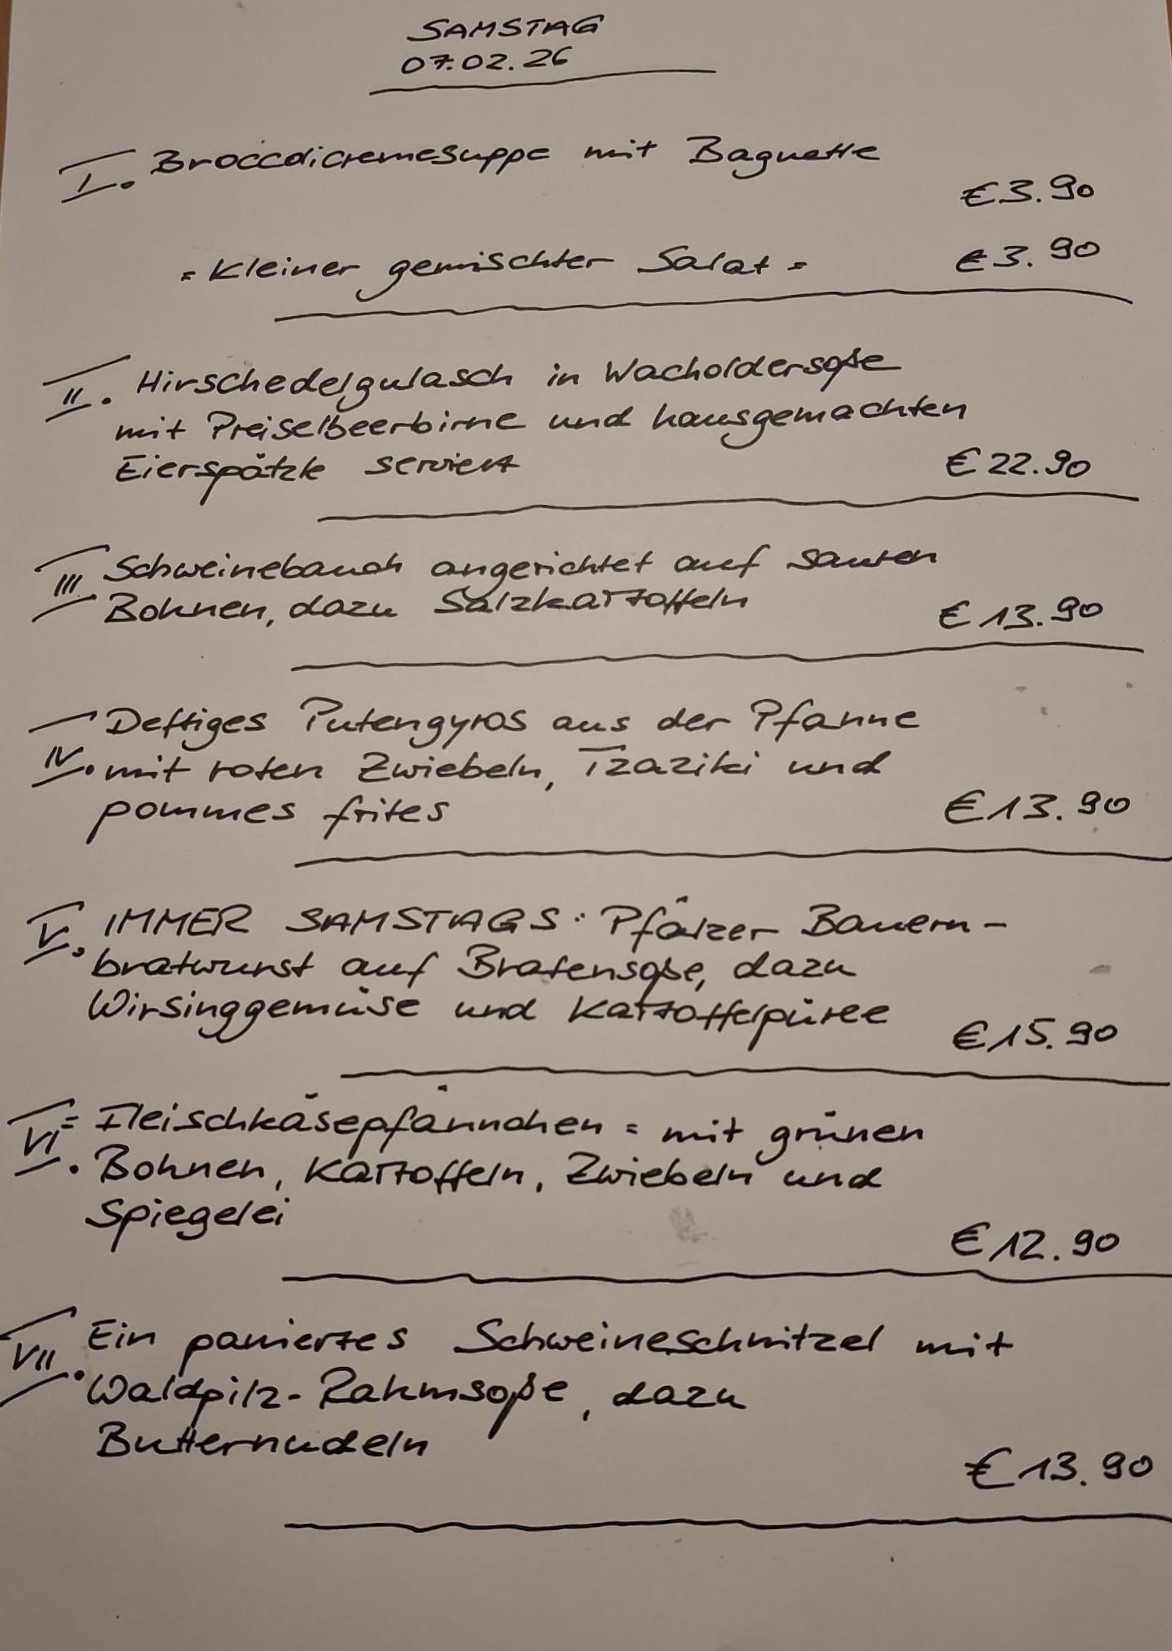 SAMSTAG
07.02.26
I. Broccolicremesuppe mit Baguette
€3.90
= Kleiner gemischter Salat = €3.90
II. Hirschedelgulasch in Wacholdersoße
mit Preiselbeerbirne und hausgemachten
Eierspätzle serviert €22.90
III. Schweinebauch angerichtet auf sauren
Bohnen, dazu Salzkartoffeln €13.90
IV. Deftiges Putengyros aus der Pfanne
mit roten Zwiebeln, Tzaziki und
pommes frites €13.90
V. IMMER SAMSTAGS: Pfälzer Bauern-
bratwurst auf Bratensoße, dazu
Wirsinggemüse und Kartoffelpüree
€15.90
VI. = Fleischkäsepfännchen = mit grünen
Bohnen, Kartoffeln, Zwiebeln und
Spiegelei
€12.90
VII. Ein paniertes Schweineschnitzel mit
Waldpilz-Rahmsoße, dazu
Butternudeln
€13.90